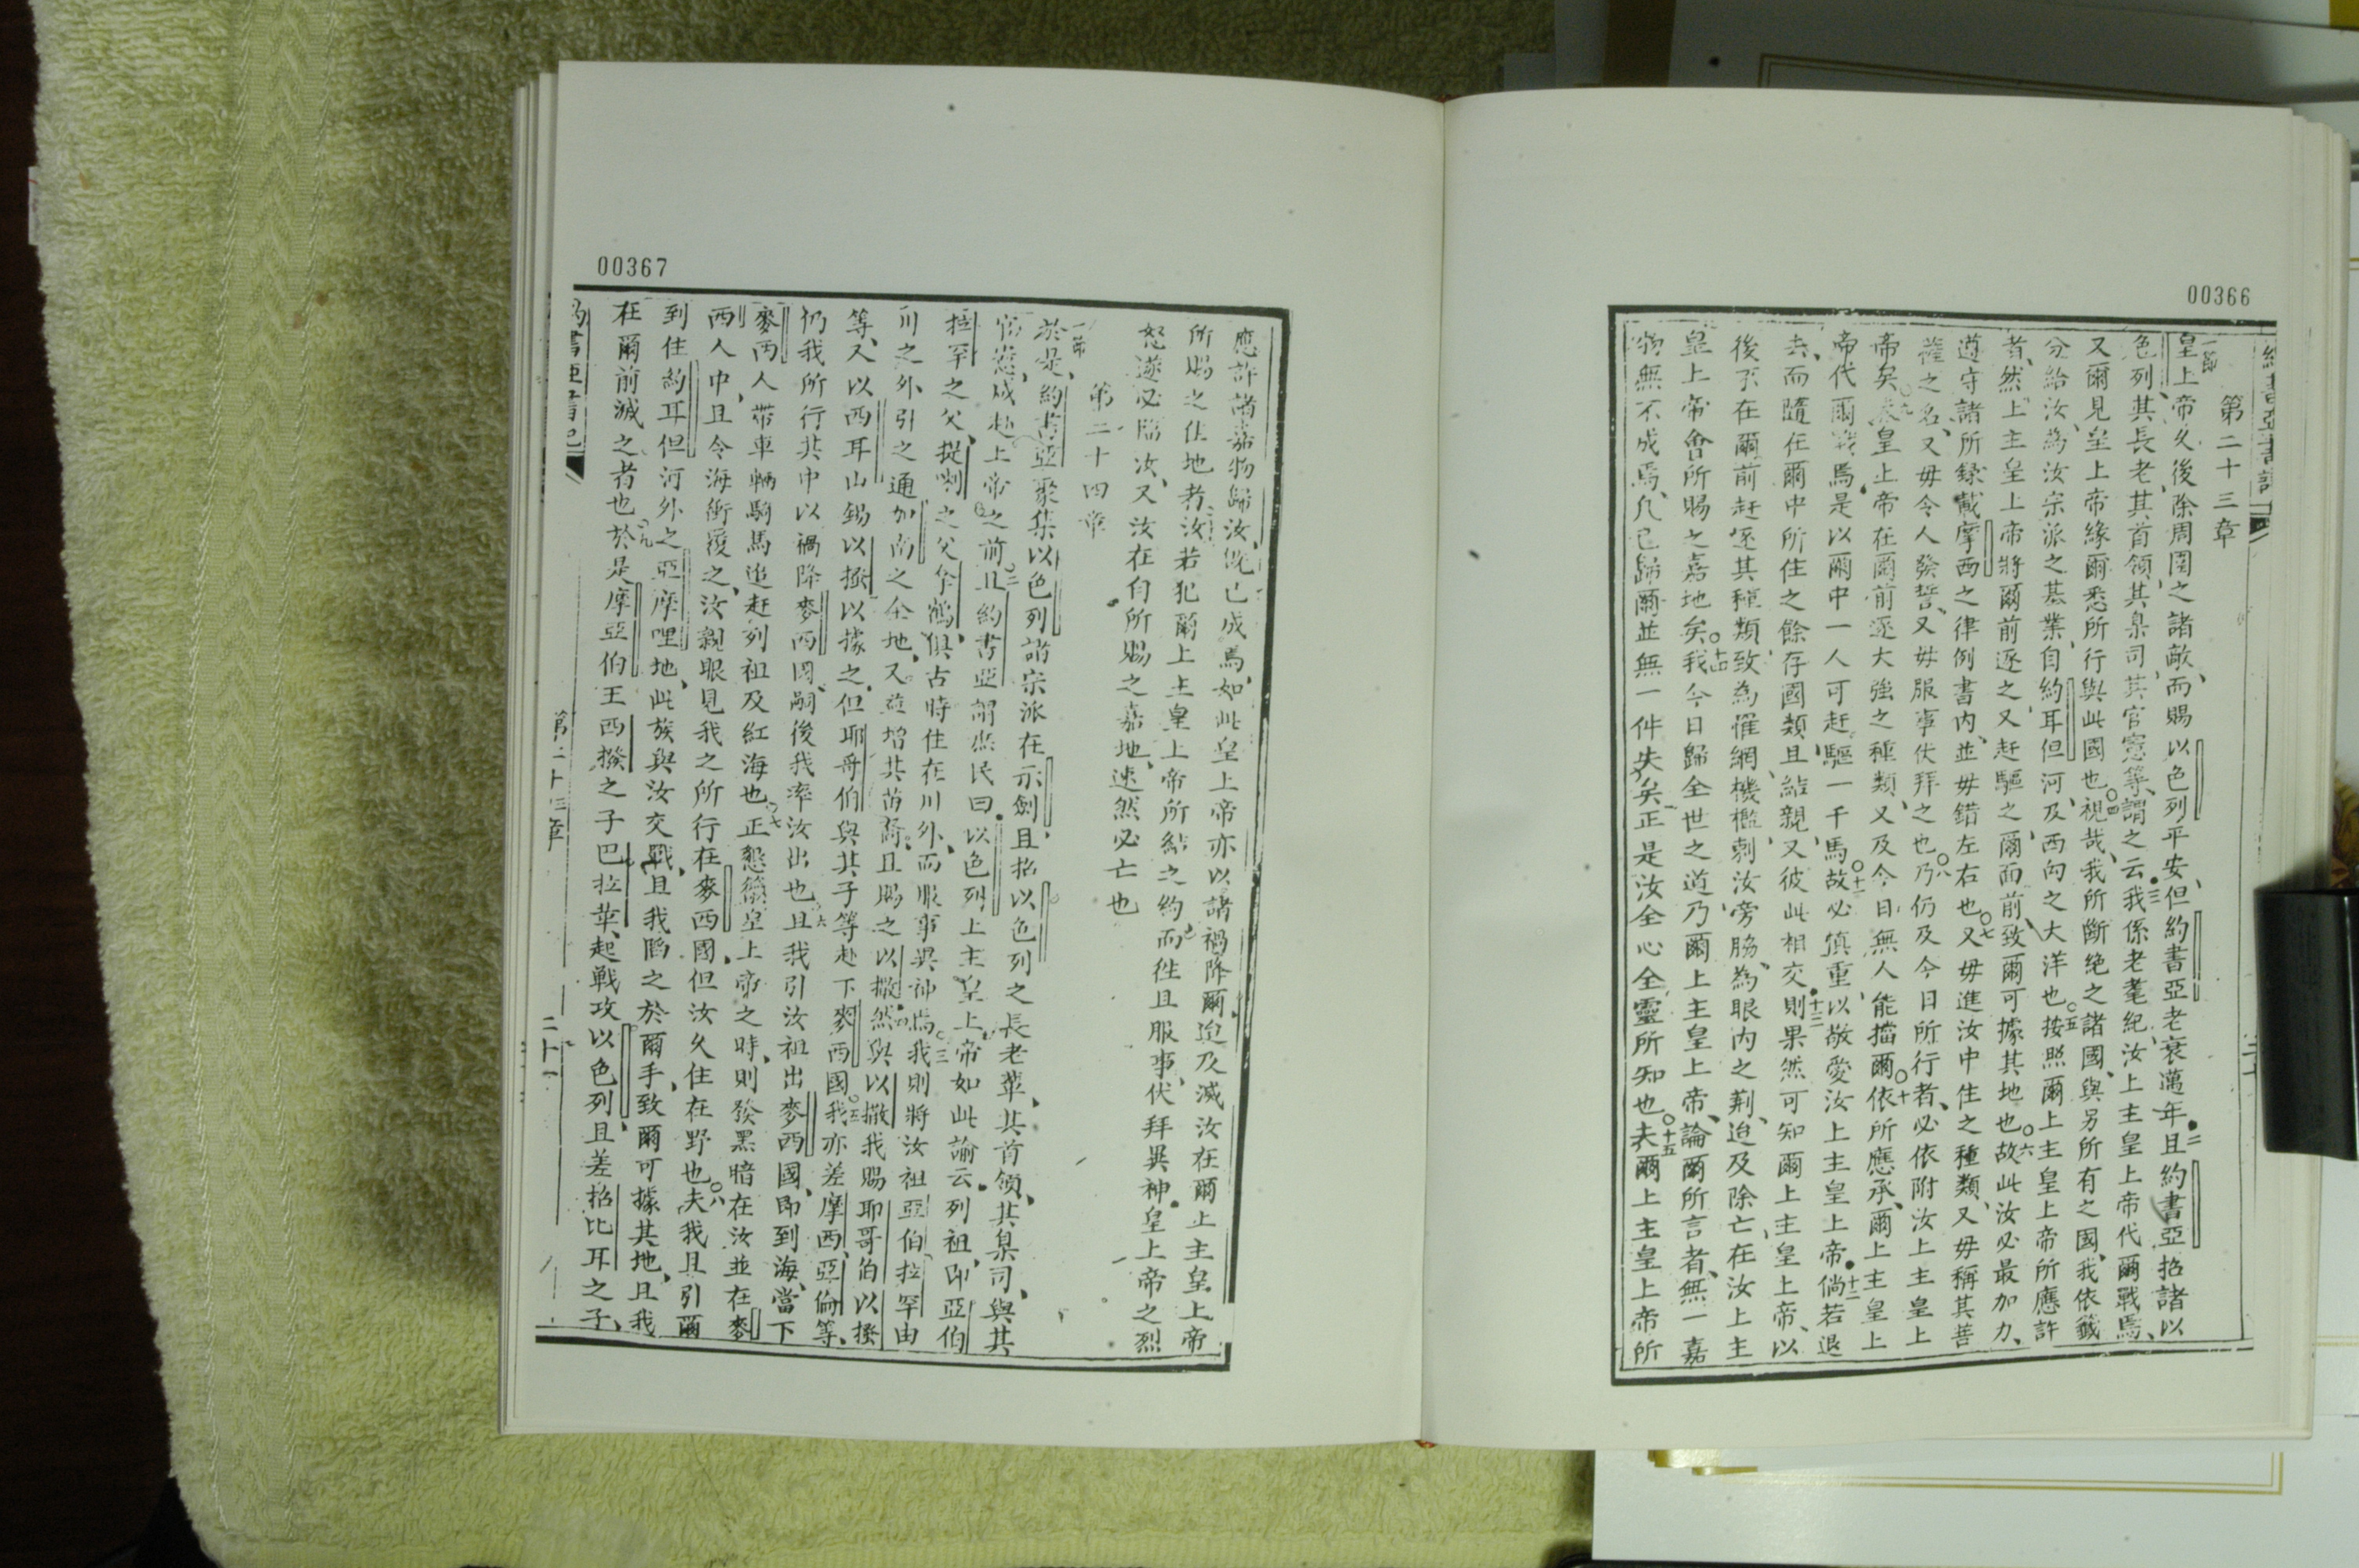 00366
約書亞書記
第二十三章
一節
皇上帝久後除周圍之諸敵、而賜以色列平安、但約書亞老衰邁年。二且約書亞招諸以
色列、其長老、其首領、其臬司、其官憲等、謂之云、我係老耄紀、三汝上主皇上帝代爾戰焉、
又爾見皇上帝緣爾悉所行與此國也。四視哉、我所斷絕之諸國、與另所有之國、我依籤
分給汝、為汝宗派之基業、自約耳但河、及西向之大洋也。五按照爾上主皇上帝所應許
者、然上主皇上帝將爾前逐之、又赶驅之、爾面前、致爾可據其地也。六故此汝必最加力、
遵守諸所錄載摩西之律例書內、並毋錯左右也。七又毋進汝中住之種類、又毋稱其菩
薩之名、又毋令人發誓、又毋服事伏拜之也。八乃仍及今日所行者、必依附汝上主皇上
帝矣。九夫皇上帝在爾前逐大強之種類、又及今日無人能擋爾。十依所應承、爾上主皇上
帝代爾戰焉、是以爾中一人可赶驅一千焉。十一故必慎重、以敬愛汝上主皇上帝。十二倘若退
去、而隨在爾中所住之餘存國類、且結親、又彼此相交。十三則果然可知爾上主皇上帝、以
後不在爾前赶逐其種類、致為罹網機檻、刺汝旁脇、為眼內之荊、迨及除亡、在汝上主
皇上帝會所賜之嘉地矣。十四我今日歸全世之道、乃爾上主皇上帝、論爾所言者、無一嘉
物無不成焉、凡已歸爾並無一件失矣、正是汝全心全靈所知也。十五夫爾上主皇上帝所
00367
應許諸嘉物歸汝、既已成焉、如此皇上帝亦以諸禍降爾、迨及滅汝在爾上主皇上帝
所賜之住地者、汝若犯爾上主皇上帝所結之約、而徃且服事、伏拜異神。皇上帝之烈
怒遂必臨汝、又汝在自所賜之嘉地、速然必亡也
第二十四章
一節
於是、約書亞聚集以色列諸宗派在示劍、且招以色列之長老輩、其首領、其臬司、與其
官憲、咸赴上帝之前。二且約書亞謂此民曰、以色列上主皇上帝如此諭云、列祖、即亞伯
拉罕之父、提喇之父、拿鶴、俱古時住在川外、而服事異神焉。三我則將汝祖亞伯拉罕由
川之外引之、通加南之全地、又並增其苗裔、且賜之以撒。四然與以撒我賜耶哥伯以掃
等、又以西耳山錫以掃以據之、但耶哥伯與其子等赴下麥西國。五我亦差摩西、亞倫等、
仍我所行其中以禍降麥西國、嗣後我率汝出也。六且我引汝祖出麥西國、即到海、當下
麥西人帶車輛騎馬追赶列祖及紅海也。七正懇籲皇上帝之時、則發黑暗在汝並在麥
西人中、且令海衝覆之、汝親眼見我之所行在麥西國、但汝久住在野也。八夫我且引爾
到住約耳但河外之亞摩哩地、此族與汝交戰、且我陷之於爾手、致爾可據其地、且我
在爾前滅之者也。九於是摩亞伯王西撥之子巴拉革、起戰攻以色列、且差招比耳之子、
約書亞書記
第二十三章
二十一